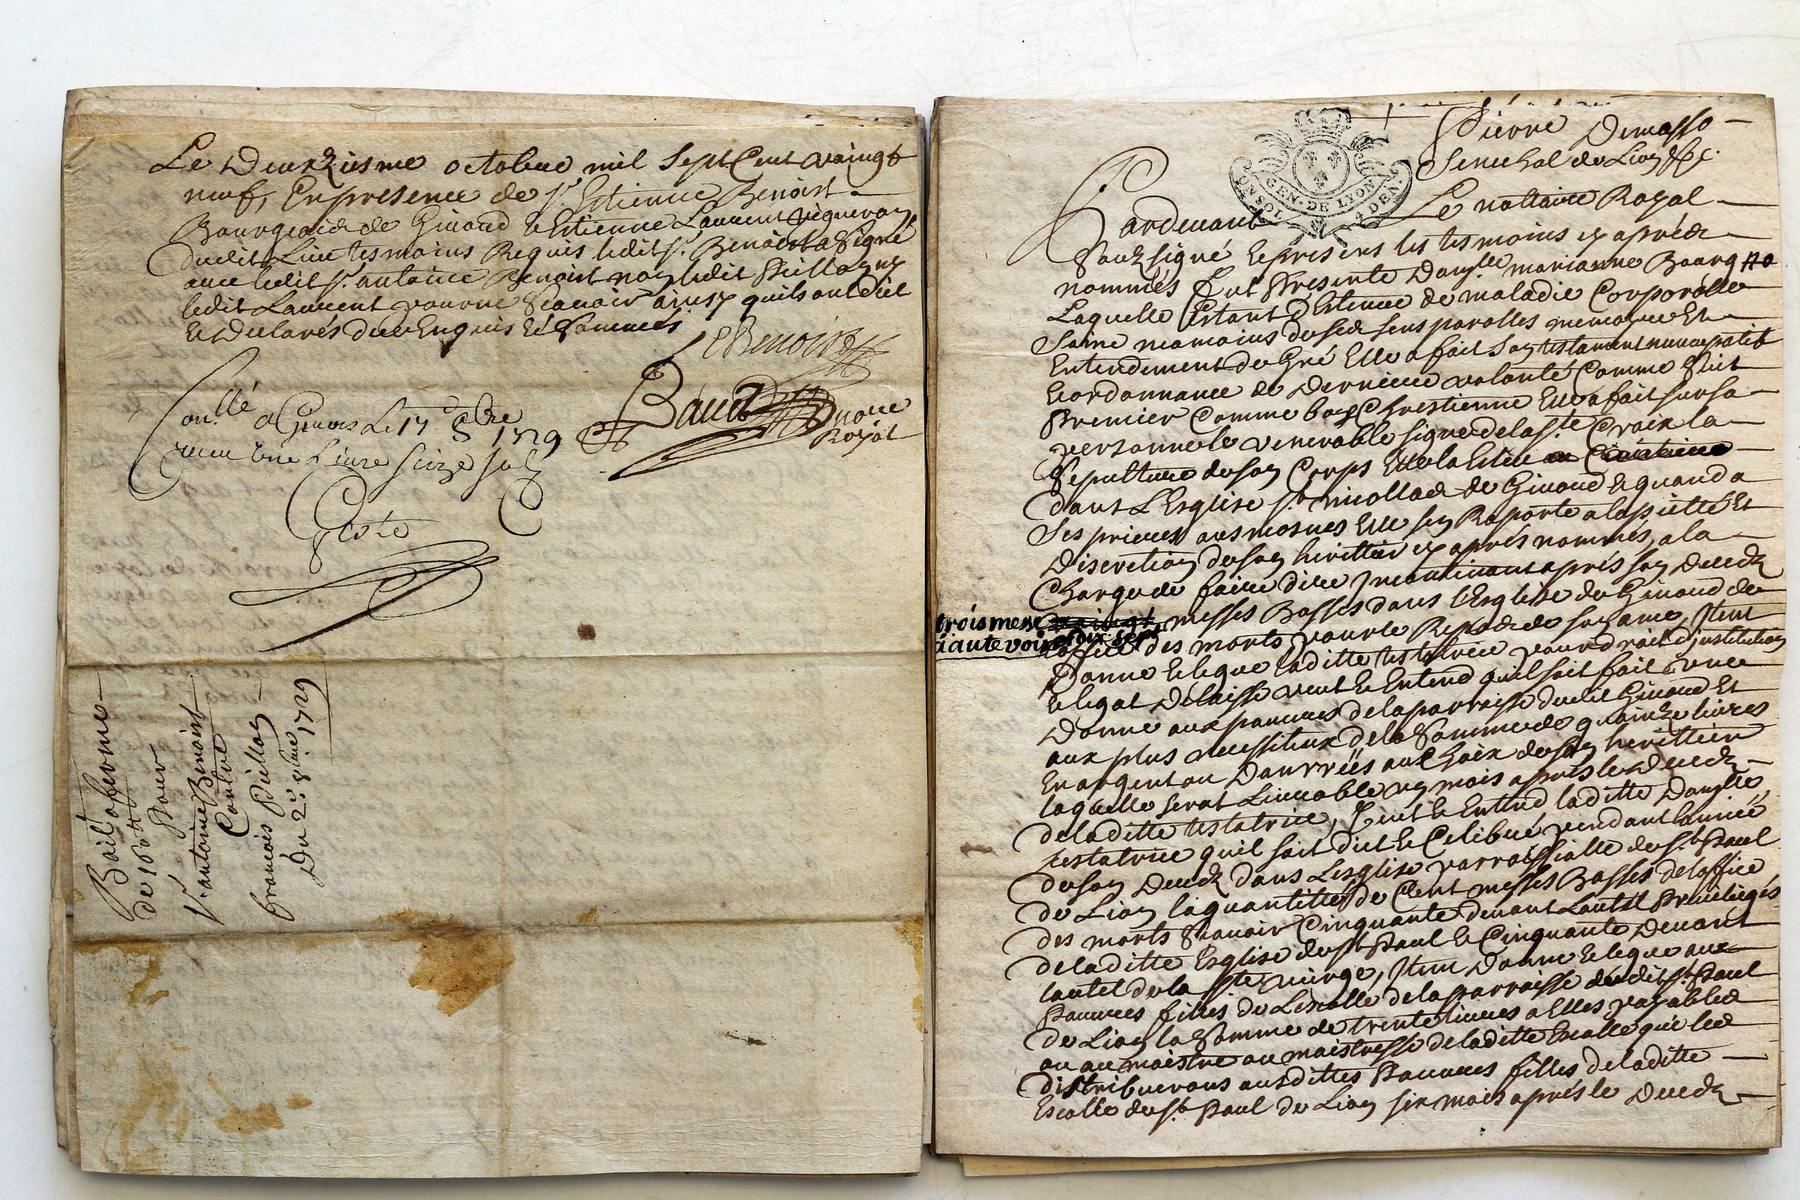 Le Deuxziesme octobre mil sept Cent vaingt
neuf, En presence de sr. Estienne Benoist
Bourgeoid de Giuord & Estienne Laurent
dudit Lieu tesmoins Requis ledit sr. Benoist a Signé
auec ledit sr. antoine Benoist non ledit Pillion ny
ledit Laurent pour ne Scauoir ainsy quils ont dict
Et declarés de ce Enquis Et Sommés
EBenoist
Baud no.re
Royal
Con.llé a Giuors Le 17 8bre 1729
receu vne Liure seize sols
Bail a ferme
de
Pour
Sr. antoine Benoist
Contre
francois Pillion
Du 2e. 8bre. 1729
Pierre Demasso
Senechal de Lion &c.
GEN. DE LYON
UN SOL 4 DEN
Pardeuant Le nottaire Royal
Soubsigné & presens les tesmoins cy aprés
nommés fut Presente Damlle. marianne Bourg
Laquelle Estant detenue de maladie Corporelle
Saine neamoins de ses sens parolles memoyre Et
Entendement de Gré Elle a fait son testament nuncupatif
& ordonnance de derniere volonté Comme Suit
Premier Comme bonne Chrestienne Elle a fait sur sa
personne le venerable signe de la ste Croix la
Sepulture de son Corps Elle la Eslue
dans L'Esglise st nicollas de Giuord & quand a
Ses prieres aumosnes Elle s'en Raporte a la piété Et
Discretion de son herittier cy aprés nommés, a la
Charge de faire dire aprés son deceds
trois messes Basses dans l'Esglise de Giuord de
l'office des morts pour le Repos de son ame, Item
Donne & legue laditte testatrice pour droict d'institution
& legat Delaisse veut & Entend quil soit fait vne
Donne aux pauures de la parroisse dudit Giuord Et
aux plus necessiteux de la Somme de quainze liures
En argent ou Danrréés au Choix de son herittier
laquelle Serat Liurable vn mois aprés le deceds
de laditte testatrice, Veut & Entend laditte Damlle.
testatrice quil soit dict & Celibré pendant l'année
de son Deceds dans Lesglise parroissialle de st Paul
de Lion la quantitté de Cent messes Basses de l'office
des morts Scauoir Cinquante deuant Lautel Priuiliegés
de laditte Esglise de st Paul & Cinquante Deuant
lautel de la ste vierge, Item Donne & legue aux
Pauures filles de Lescolle de la parroisse dudit st. Paul
de Lion la Somme de trente liures a Elles payables
ou au maistre ou maistresse de laditte Escolle qui les
distribuerons ausdittes Pauures filles de laditte
Escolle de st. Paul de Lion six mois aprés le Deceds